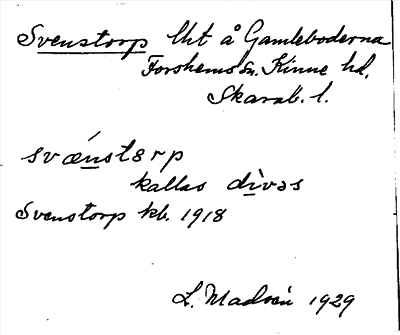 Svenstorp lht å Gamleboderna
Forshems sn. Kinne hd.
Skarab. l.
svǽnstɛrp
kallas dìvəs
Svenstorp kb. 1918
L. Madsén 1929